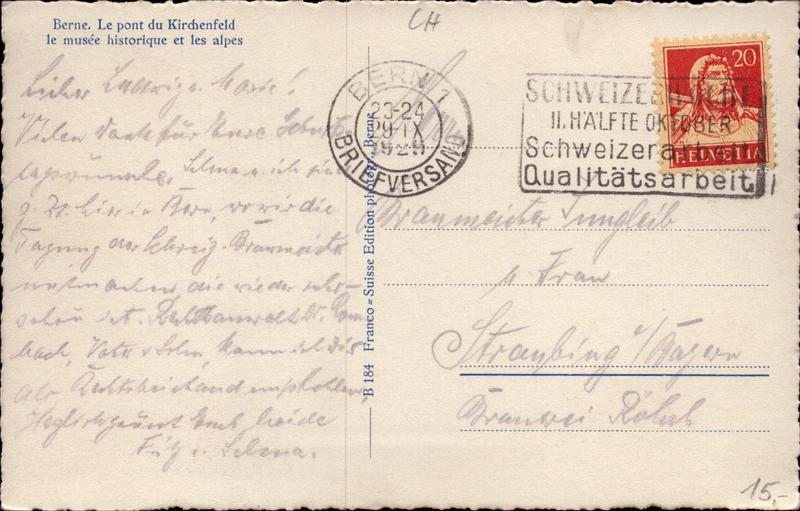 Berne. Le pont du Kirchenfeld
le musée historique et les alpes
CH
Lieber Ludwig u. Marie!
Vielen Dank für Eure Geburts-
tagswünsche. Selma u. ich sind
z. Zt. hier in Bern, wo wir die
Tagung der Schweiz. Braumeister
mitmachen die wieder sehr
schön ist. Rechtsanwalt Dr. Rom
bach, Vater u Sohn, kann ich Dir
als Rechtsbeistand empfehlen,
Herzlich grüsst Euch beide
Fritz u. Selma.
B 184 Franco-Suisse Edition photogr. Berne
BERN 1
23-24
29·IX
1929
BRIEFVERSAND
SCHWEIZERWOCHE
II. HÄLFTE OKTOBER
Schweizerarbeit
Qualitätsarbeit
20
HELVETIA
Braumeister Jungleib
u. Frau
Straubing i/Bayern
Brauerei Röhrl
15,-